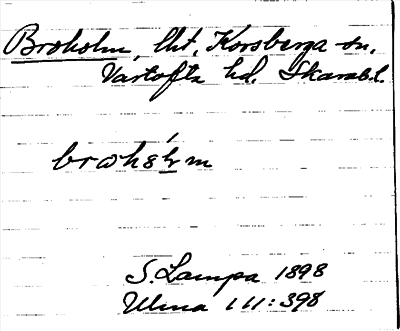 Broholm, lht, Korsberga sn,
Vartofta hd. Skarab.l.
S. Lampa 1898
Ulma 111:398